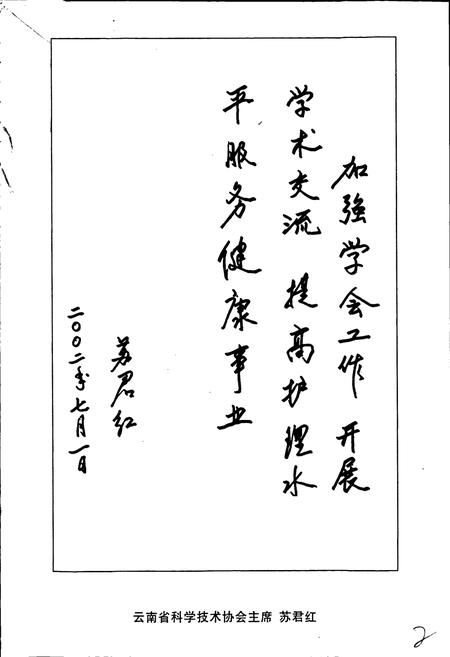 加強学会工作 开展
学术交流 提高护理水
平服务健康事业
苏君红
二〇〇二年七月一日
云南省科学技术协会主席 苏君红
2